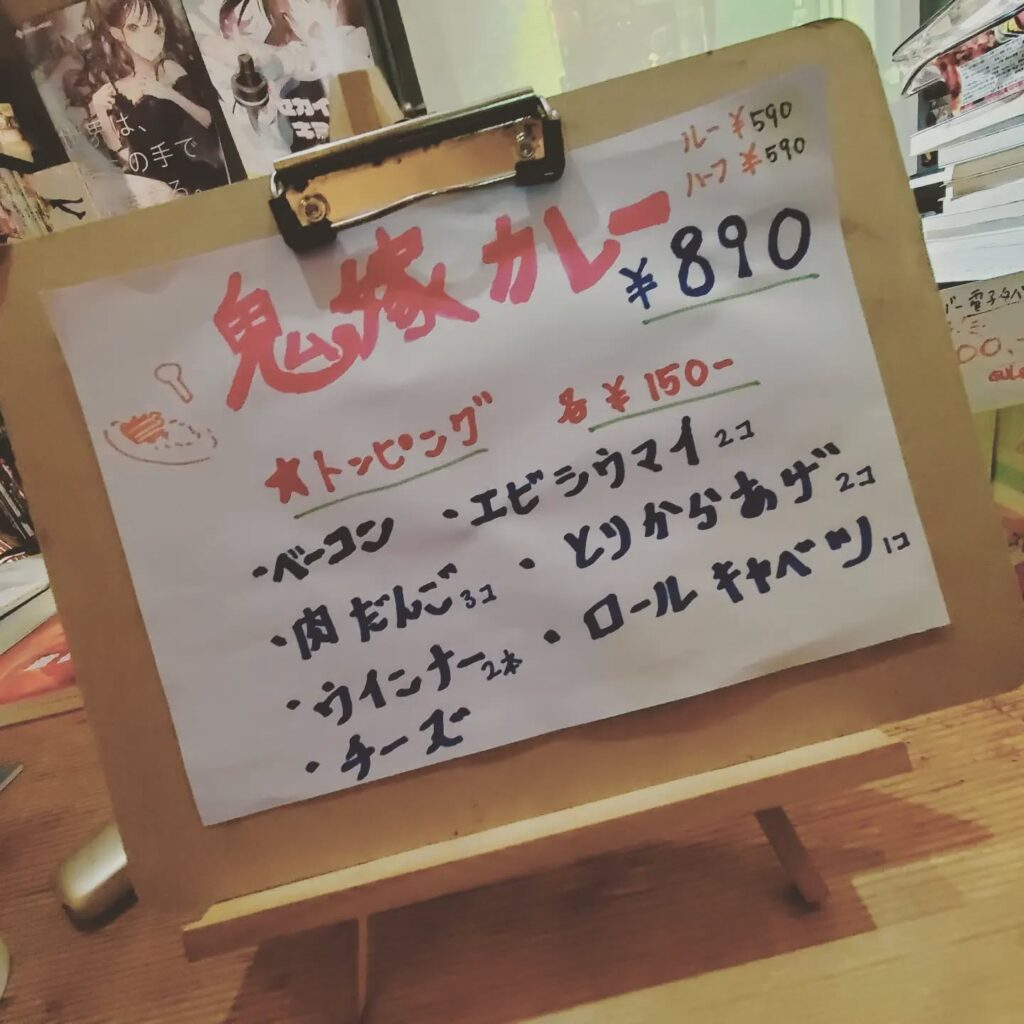 ルー ¥590
ハーフ ¥590
鬼嫁カレー ¥890
★トッピング 各¥150-
・ベーコン ・エビシウマイ2コ
・肉だんご3コ ・とりからあげ2コ
・ウインナー2本 ・ロールキャベツ1コ
・チーズ
は、
の手で
セカイ
電子タバ